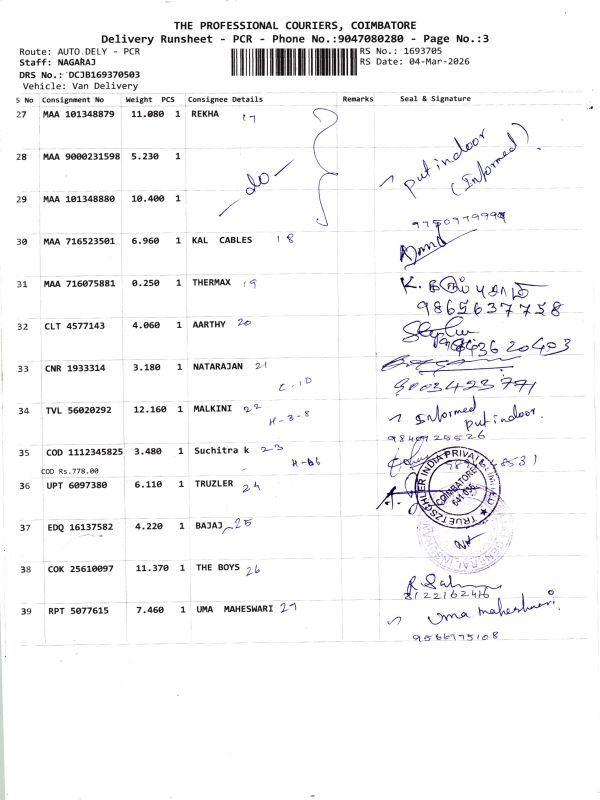 THE PROFESSIONAL COURIERS, COIMBATORE
Delivery Runsheet - PCR - Phone No.:9047080280 - Page No.:3
Route: AUTO.DELY - PCR RS No.: 1693705
Staff: NAGARAJ RS Date: 04-Mar-2026
DRS No.: DCJB169370503
Vehicle: Van Delivery
S No Consignment No Weight PCS Consignee Details Remarks Seal & Signature
27 MAA 101348879 11.080 1 REKHA 17
28 MAA 9000231598 5.230 1 put indoor
-do- (Informed)
29 MAA 101348880 10.400 1
30 MAA 716523501 6.960 1 KAL CABLES 18
31 MAA 716075881 0.250 1 THERMAX 19 K.
9865637758
32 CLT 4577143 4.060 1 AARTHY 20
33 CNR 1933314 3.180 1 NATARAJAN 21
C-1D 9003423771
34 TVL 56020292 12.160 1 MALKINI 22 Informed
H-3-8 put indoor.
35 COD 1112345825 3.480 1 Suchitra k 23
COD Rs.778.00
36 UPT 6097380 6.110 1 TRUZLER 24
TRUETZSCHLER INDIA PRIVATE LIMITED
COIMBATORE
37 EDQ 16137582 4.220 1 BAJAJ 25
38 COK 25610097 11.370 1 THE BOYS 26
8122162416
39 RPT 5077615 7.460 1 UMA MAHESWARI 27 Uma maheshwari.
9566775108